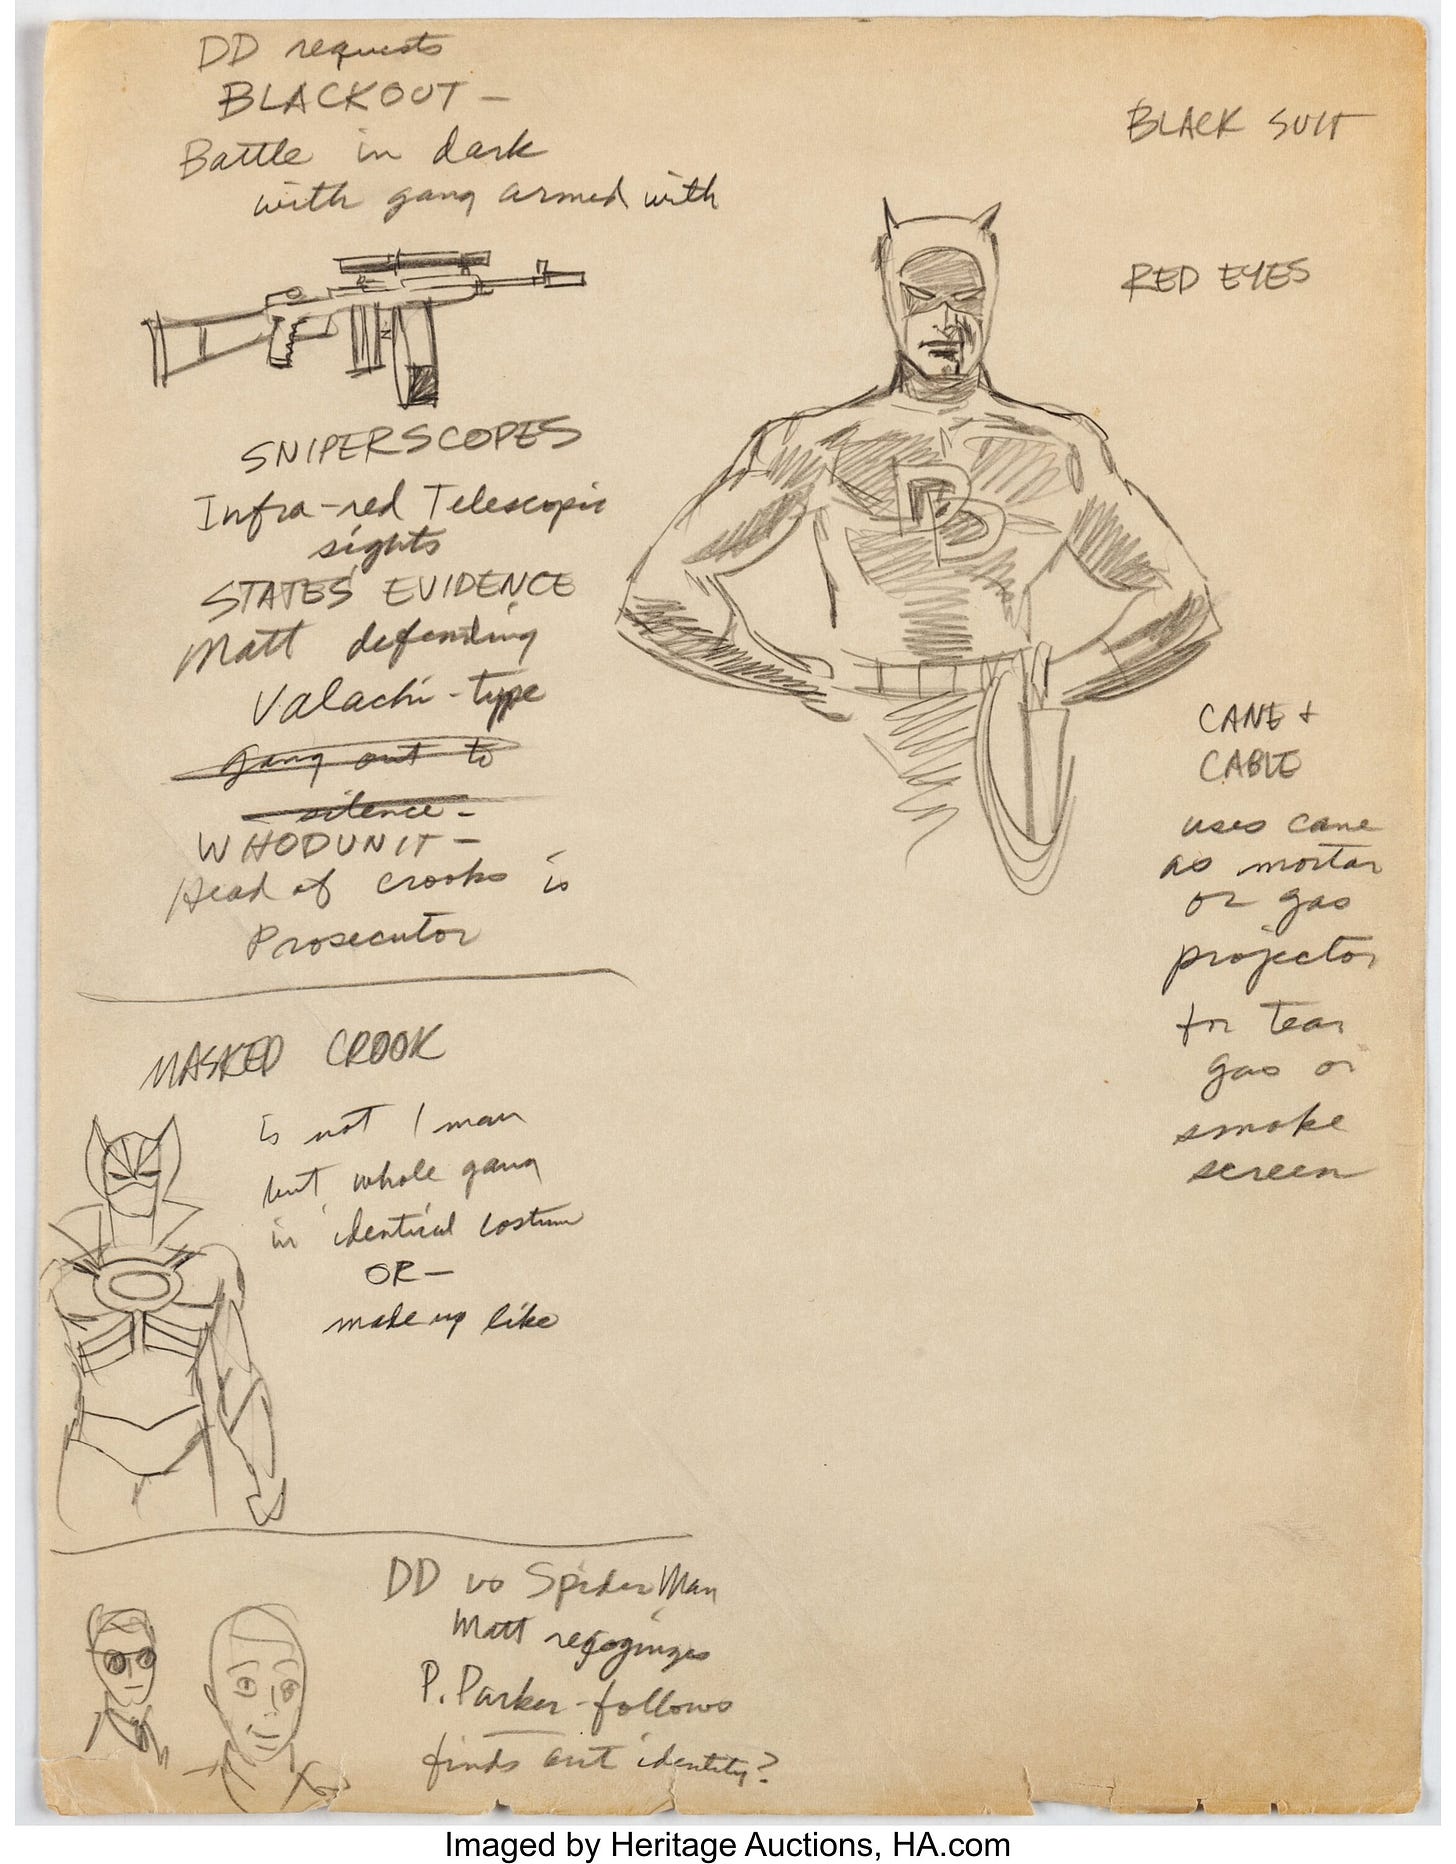 DD requests
BLACKOUT –
Battle in dark
with gang armed with
SNIPERSCOPES
Infra-red Telescopic
sights
STATES' EVIDENCE
Matt defending
Valachi-type
gang out to
silence –
WHODUNIT –
Head of crooks is
Prosecutor
BLACK SUIT
RED EYES
DD
CANE +
CABLE
uses cane
as mortar
or gas
projector
for tear
gas or
smoke
screen
MASKED CROOK
is not 1 man
but whole gang
in identical costume
OR –
made up like
DD vs SpiderMan
Matt recoginzes
P. Parker - follows
finds out identity?
Imaged by Heritage Auctions, HA.com